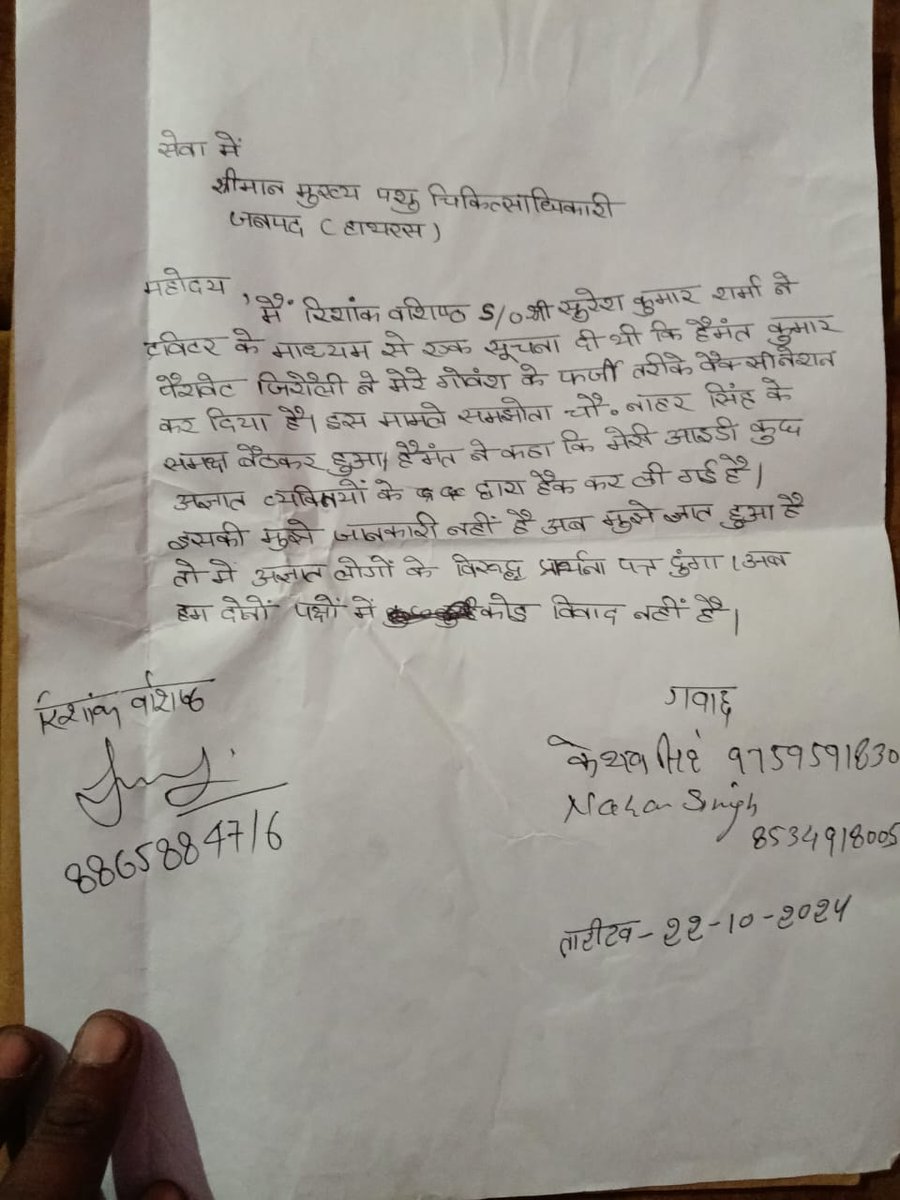 सेवा में
श्रीमान मुख्य पशु चिकित्साधिकारी
जनपद ( हाथरस )
महोदय ,
मैं रिशांक वशिष्ठ S/o श्री सुरेश कुमार शर्मा ने
टविटर के माध्यम से एक सूचना दी थी कि हैमंत कुमार
पैरावेट जिरौली ने मेरे गोवंश के फर्जी तरीके वैक्सीनेशन
कर दिया है। इस मामले समझोता चौ. नाहर सिंह के
समक्ष बैठकर हुआ। हैमंत ने कहा कि मेरी आइडी कुछ
अज्ञात व्यक्तियों के द्वारा हैक कर ली गई है।
इसकी मुझे जानकारी नहीं है अब मुझे ज्ञात हुआ है
तो में अज्ञात लोगों के विरूद्ध प्रार्थना पत्र दुंगा । अब
हम दोनों पक्षों में कोइ विवाद नहीं है।
रिशांक वशिष्ठ
8865884716
गवाह
केशव सिंह 9759591830
Nahar Singh
8534918005
तारीख - 22-10-2024